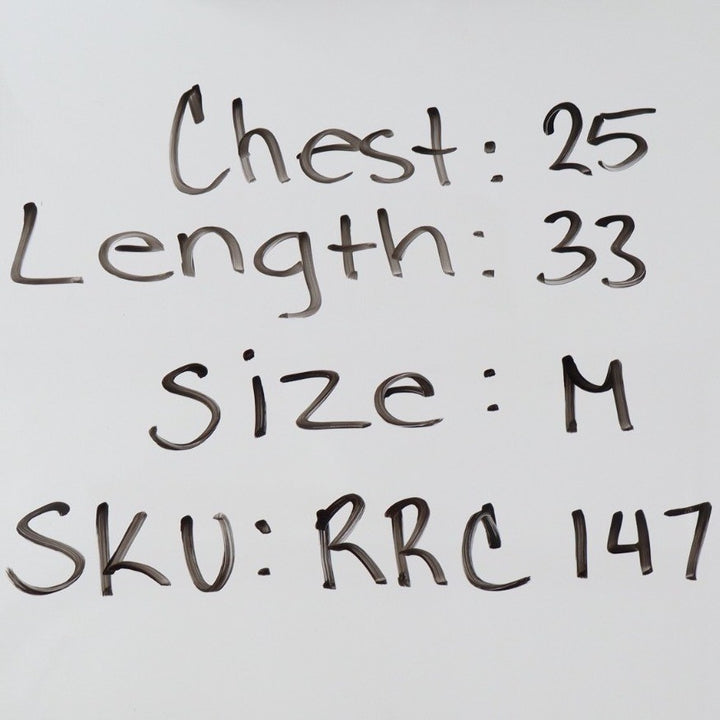 Chest: 25
Length: 33
Size: M
SKU: RRC 147